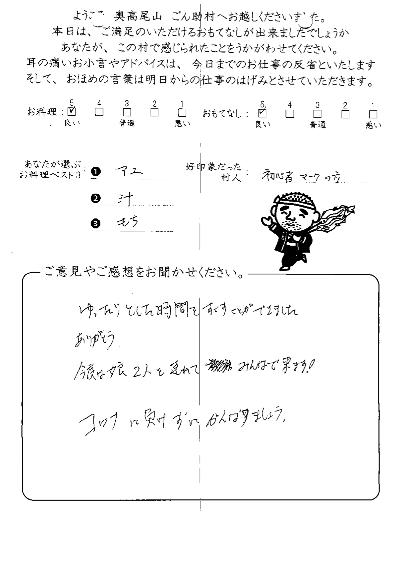 ようこそ 奥高尾山 ごん助村へお越しくださいました。
本日は、ご満足のいただけるおもてなしが出来ましたでしょうか
あなたが、この村で感じられたことをうかがわせてください。
耳の痛いお小言やアドバイスは、今日までのお仕事の反省といたします
そして、おほめの言葉は明日からの仕事のはげみとさせていただきます。
お料理: 5 4 3 2 1 おもてなし: 5 4 3 2 1
良い 普通 悪い 良い 普通 悪い
あなたが選ぶ
お料理ベスト3
❶ アユ
❷ 汁
❸ もち
好印象だった
村人: 初心者マークの方
ご意見やご感想をお聞かせください。
ゆったりとした時間をすごすことができました
ありがとう
今度は娘2人を連れて みんなで来ます!
コロナに負けずにがんばりましょう。